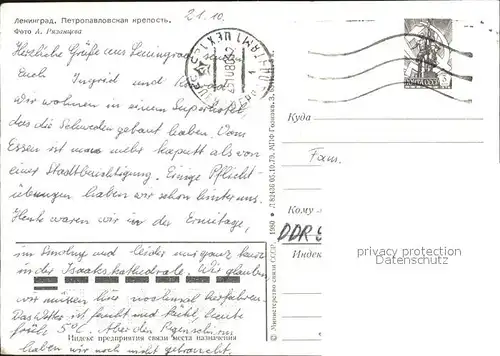 Ленинград. Петропавловская крепость.
Фото А. Рязанцева
21.10.
Herzliche Grüße aus Leningrad
Euch Ingrid und
Wir wohnen in einem Superhotel,
das die Schweden gebaut haben. Vom
Essen ist man mehr kaputt als von
einer Stadtbesichtigung. Einige Pflicht-
übungen haben wir schon hinter uns.
Heute waren wir in der Ermitage,
im Smolny und leider nur ganz kurz
in der Isaakskathedrale. Wir glauben
wir müssen hier nochmal herfahren.
Das Wetter ist feucht und kühl, heute
früh 5°C. Aber den Regenschirm
haben wir noch nicht gebraucht.
Индекс предприятия связи места назначения
© Министерство связи СССР. 1980
Куда
Fam.
Кому
DDR
Индек
privacy protection
Datenschutz